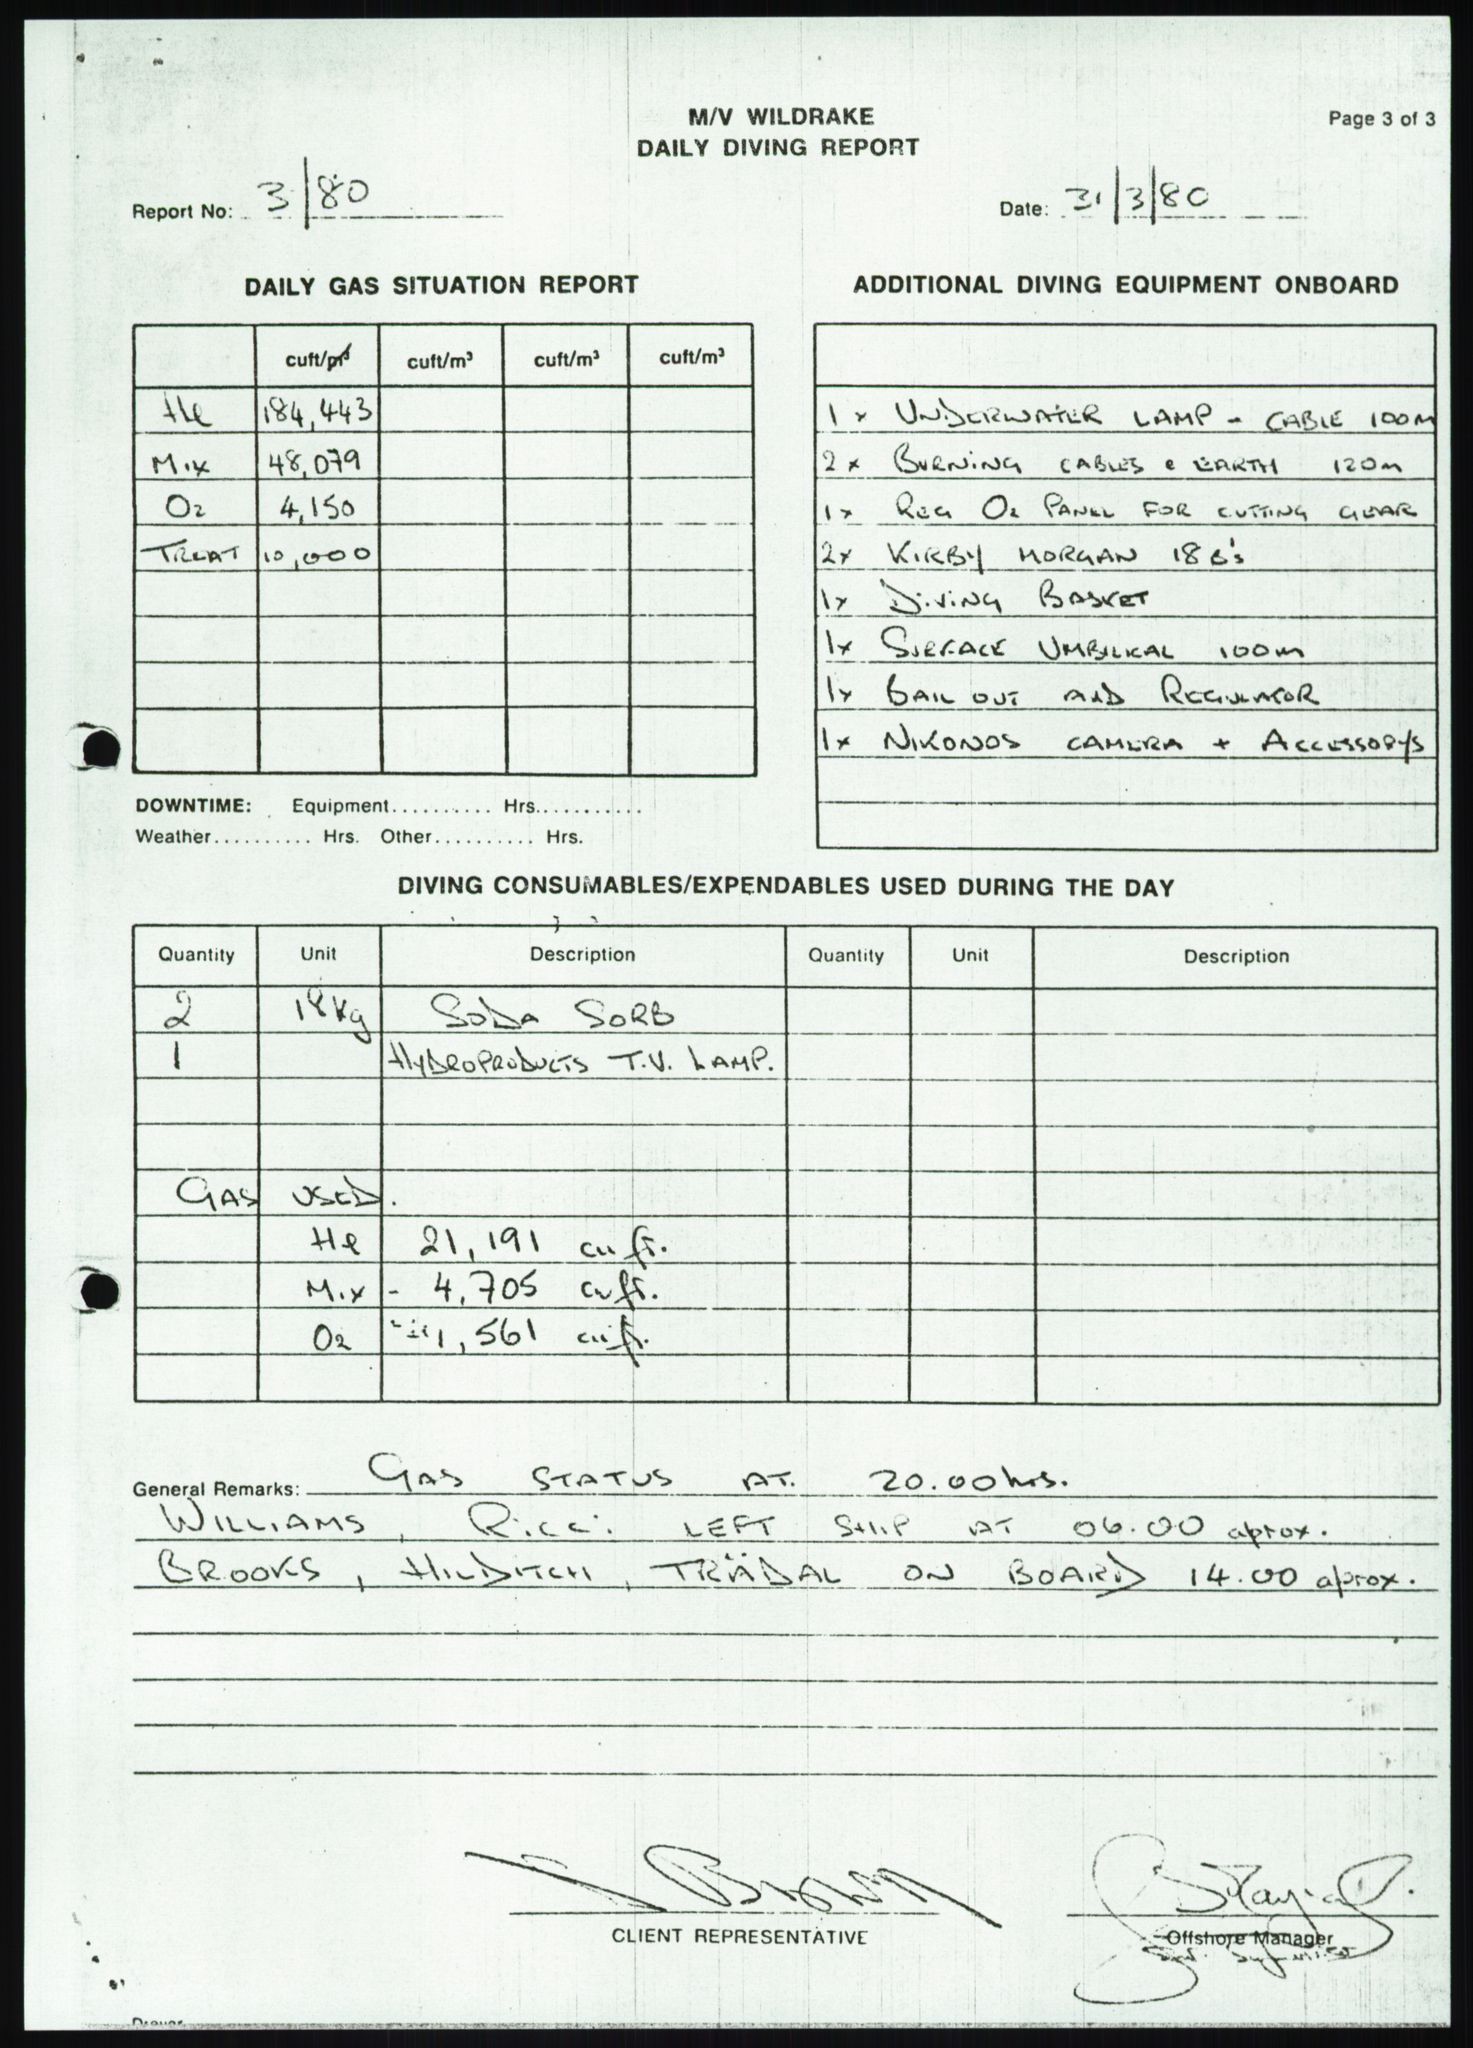 M/V WILDRAKE
DAILY DIVING REPORT
Page 3 of 3
Report No: 3/80
Date: 31/3/80
DAILY GAS SITUATION REPORT
cuft/m³ cuft/m³ cuft/m³ cuft/m³
He 184,443
Mix 48,079
O2 4,150
TREAT 10,000
ADDITIONAL DIVING EQUIPMENT ONBOARD
1x UNDERWATER LAMP - CABLE 100M
2x BURNING CABLES & EARTH 120m
1x REG O2 PANEL FOR CUTTING GEAR
2x KIRBY MORGAN 18B's
1x DIVING BASKET
1x SURFACE UMBILICAL 100m
1x BAIL OUT AND REGULATOR
1x NIKONOS CAMERA + ACCESSORYS
DOWNTIME: Equipment.......... Hrs...........
Weather.......... Hrs. Other.......... Hrs.
DIVING CONSUMABLES/EXPENDABLES USED DURING THE DAY
Quantity Unit Description Quantity Unit Description
2 18Kg SODA SORB
1 HYDROPRODUCTS T.V. LAMP.
GAS USED.
He 21,191 cu ft.
Mix - 4,705 cu ft.
O2 1,561 cu ft.
General Remarks: GAS STATUS AT 20.00 hrs.
WILLIAMS, RICCI LEFT SHIP AT 06.00 aprox.
BROOKS, HILDITCH, TRÄDAL ON BOARD 14.00 aprox.
CLIENT REPRESENTATIVE
Offshore Manager